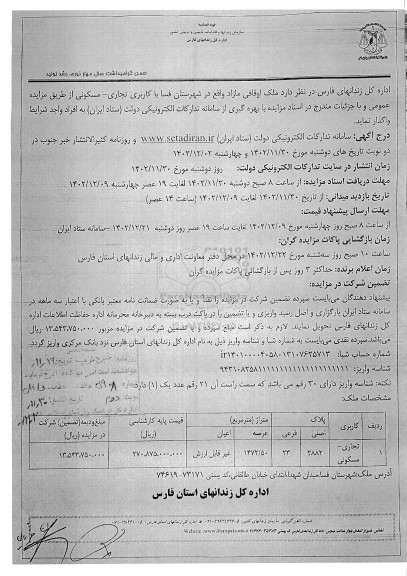 ضمن گرامیداشت سال مهار تورم، رشد تولید
اداره کل زندانهای فارس در نظر دارد ملک اوقافی مازاد واقع در شهرستان فسا با کاربری تجاری- مسکونی از طریق مزایده
عمومی و با جزئیات مندرج در اسناد مزایده با بهره گیری از سامانه تدارکات الکترونیکی دولت (ستاد ایران) به افراد واجد شرایط
واگذار نماید.
درج آگهی: سامانه تدارکات الکترونیکی دولت (ستاد ایران) www.setadiran.ir و روزنامه کثیرالانتشار خبر جنوب در
دو نوبت تاریخ های دوشنبه مورخ ۱۴۰۲/۱۱/۳۰ و چهارشنبه ۱۴۰۲/۱۲/۰۲
زمان انتشار در سایت تدارکات الکترونیکی دولت: روز دوشنبه مورخ ۱۴۰۲/۱۱/۳۰
مهلت دریافت اسناد مزایده: از ساعت ۸ صبح دوشنبه ۱۴۰۲/۱۱/۳۰ لغایت ۱۹ عصر چهارشنبه ۱۴۰۲/۱۲/۰۹
تاریخ بازدید میدانی: از تاریخ ۱۴۰۲/۱۱/۳۰ لغایت ۱۴۰۲/۱۲/۰۹ (ساعت ۱۴ عصر)
مهلت ارسال پیشنهاد قیمت:
از ساعت ۸ صبح روز چهارشنبه مورخ ۱۴۰۲/۱۲/۰۹ لغایت ساعت ۱۹ عصر روز دوشنبه ۱۴۰۲/۱۲/۲۱ –سامانه ستاد ایران
زمان بازگشایی پاکات مزایده گران:
ساعت ۱۰ صبح روز سه‌شنبه مورخ ۱۴۰۲/۱۲/۲۲ در محل دفتر معاونت اداری و مالی زندانهای استان فارس
زمان اعلام برنده: حداکثر ۳ روز پس از بازگشائی پاکات مزایده گران
تضمین شرکت در مزایده:
پیشنهاد دهندگان می‌بایست سپرده تضمین شرکت در مزایده را نقدا و یا به صورت ضمانت نامه معتبر بانکی با اعتبار سه ماهه در
سامانه ستاد ایران بارگزاری و اصل رسید واریزی و یا تضمین را در پاکت درب بسته به دبیرخانه محرمانه اداره حفاظت اطلاعات اداره
کل زندانهای فارس تحویل نمایند. لازم به ذکر است مبلغ سپرده و یا تضمین شرکت در مزایده مزبور ۱۳،۵۴۳،۷۵۰،۰۰۰ ریال
می‌باشد.سپرده نقدی می‌بایست به شماره شبا و شناسه واریز ذیل به نام اداره کل زندانهای استان فارس نزد بانک مرکزی واریز گردد.
شماره حساب شبا:
شناسه واریز:
نکته: شناسه واریز دارای ۳۰ رقم می باشد که سمت راست آن ۲۱ رقم عدد یک (۱) دارد.
مشخصات ملک:
ردیف کاربری پلاک متراژ (مترمربع) قیمت پایه کارشناسی مبلغ‌ودیعه(تضمین) شرکت
اصلی فرعی عرصه اعیان (ریال) در مزایده (ریال)
۱ تجاری- ۲۸۸۲ ۲۳ ۱۴۷۲/۵۰ غیر قابل ارزش ۲۷۰،۸۷۵،۰۰۰،۰۰۰ ۱۳،۵۴۳،۷۵۰،۰۰۰
مسکونی
آدرس ملک:شهرستان فسا-میدان شهدا-ابتدای خیابان طالقانی،کد پستی ۷۳۱۷۱-۷۴۶۱۹
اداره کل زندانهای استان فارس